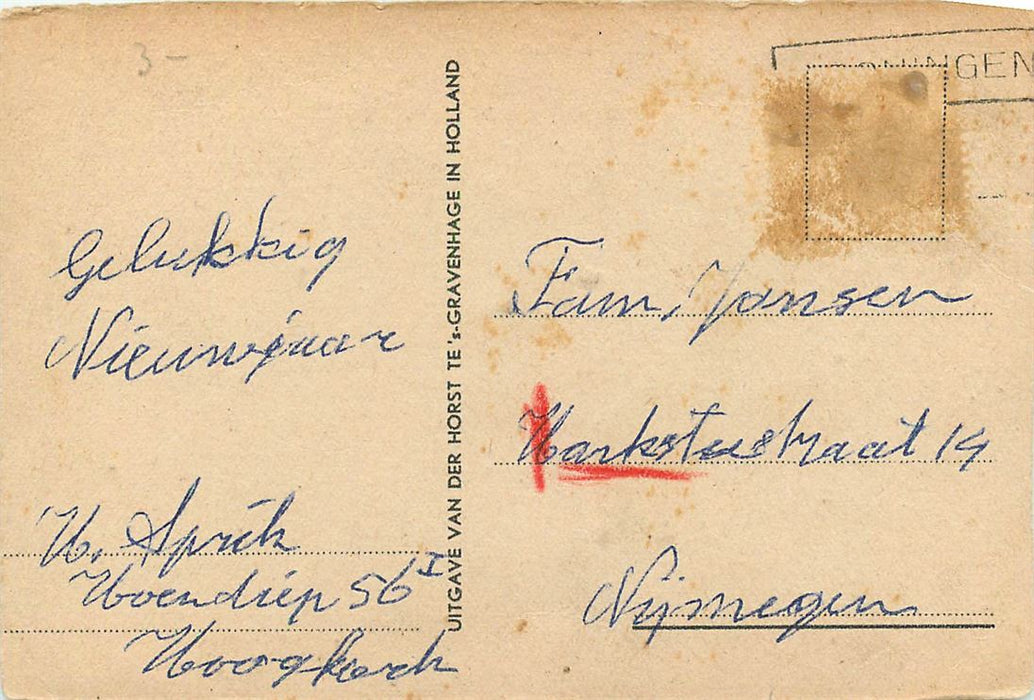 3-
NINGEN
Gelukkig
Nieuwjaar
H. Sprik
Hoendiep 56 I
Hoogkerk
UITGAVE VAN DER HORST TE 's-GRAVENHAGE IN HOLLAND
Fam, Jansen
14
Nijmegen